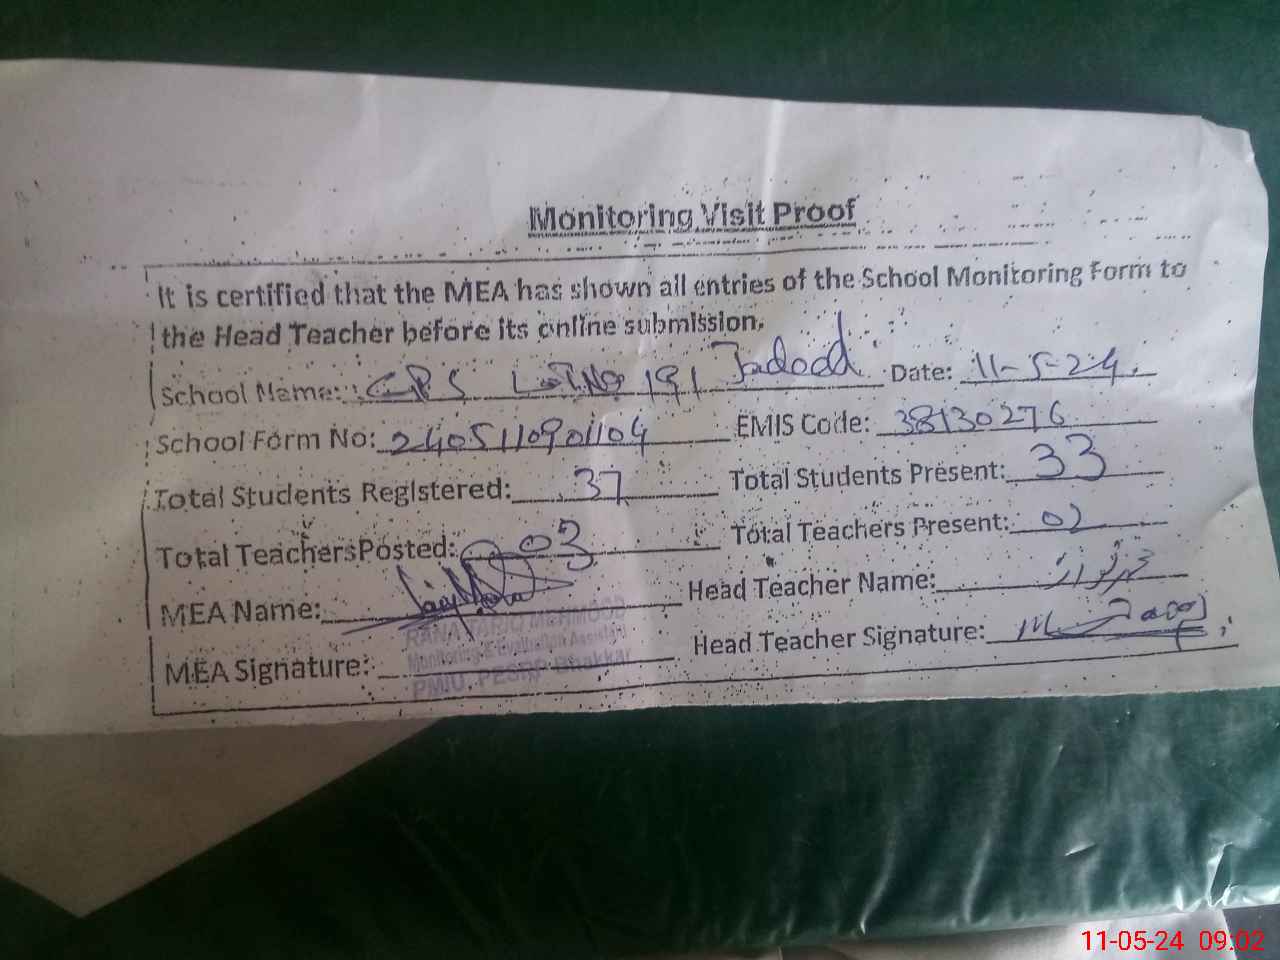 Monitoring Visit Proof
It is certified that the MEA has shown all entries of the School Monitoring Form to
the Head Teacher before its online submission.
School Name: GPS Lot No 191 Jadeed Date: 11-5-24
School Form No: 2405110901104 EMIS Code: 38130276
Total Students Registered: 37 Total Students Present: 33
Total Teachers Posted: 03 Total Teachers Present: 02
MEA Name: Head Teacher Name:
RANA TARIQ MEHMOOD
Monitoring & Evaluation Assistant
MEA Signature: Head Teacher Signature:
PMIU, PESRP Bhakkar
11-05-24 09:02